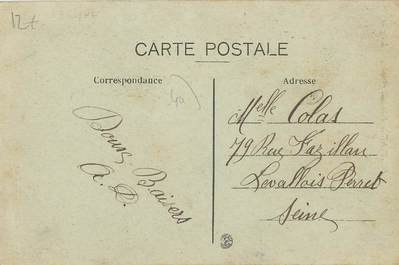 12f
CARTE POSTALE
Correspondance
Adresse
40
Doux Baisers
A. D.
Melle Colas
79 Rue Fazillau
Levallois Perret
Seine